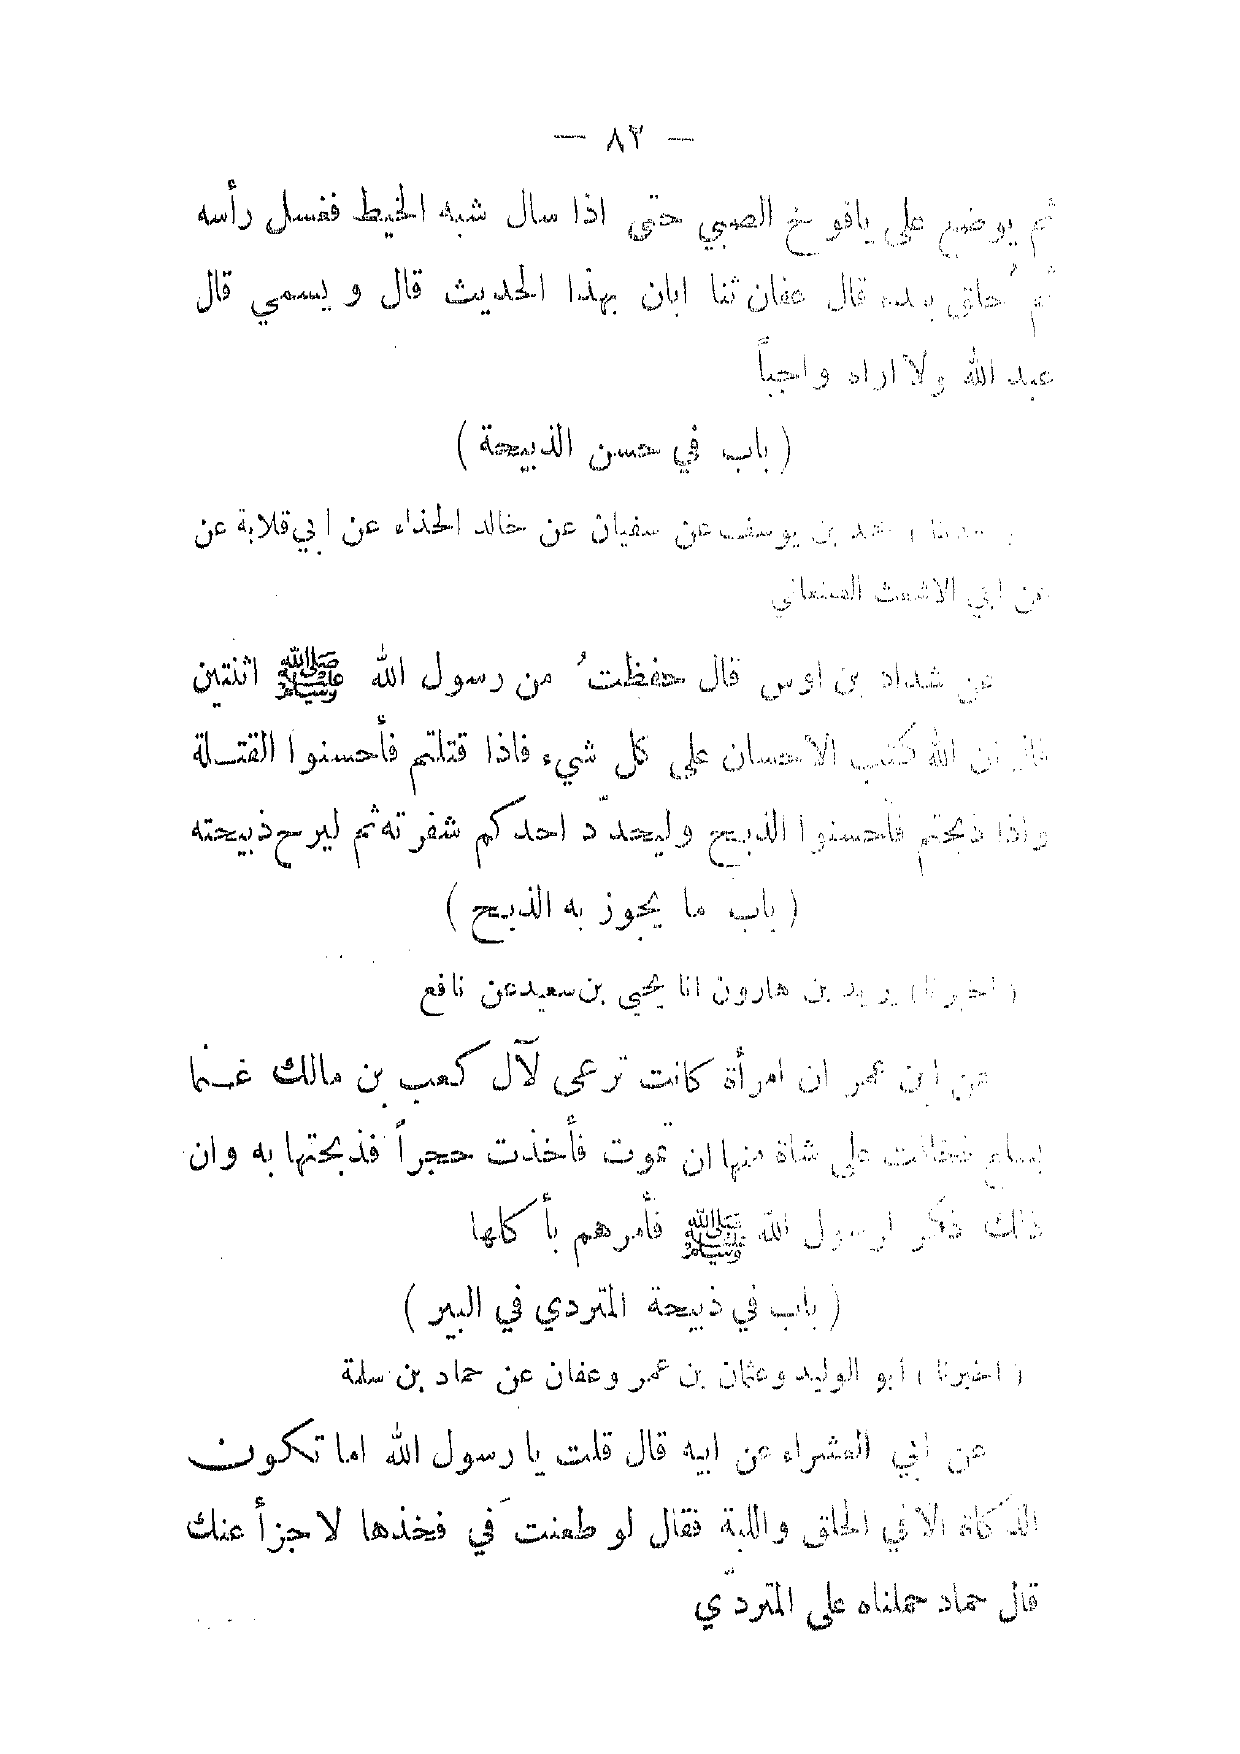 — ٨٢ —
ثم يوضع على يافوخ الصبي حتى اذا سال شبه الخيط غسل رأسه
ثم حلق بعده قال عفان ثنا ابان بهذا الحديث قال ويسمي قال
عبد الله ولا اراه واجباً
( باب في حسن الذبيحة )
محمد بن يوسف عن سفيان عن خالد الحذاء عن ابي قلابة عن
عن ابي الاشعث الصنعاني
عن شداد بن اوس قال حفظتُ من رسول الله ﷺ اثنتين
قال ان الله كتب الاحسان على كل شيء فاذا قتلتم فأحسنوا القتلة
واذا ذبحتم فأحسنوا الذبح وليحدّد احدكم شفرته ثم ليرح ذبيحته
( باب ما يجوز به الذبح )
( اخبرنا ) يزيد بن هارون انا يحيى بن سعيد عن نافع
عن ابن عمر ان امرأة كانت ترعى لآل كعب بن مالك غنما
بسلع فخافت على شاة منها ان تموت فأخذت حجراً فذبحتها به وان
ذلك ذكر لرسول الله ﷺ فأمرهم بأكلها
( باب في ذبيحة المتردي في البير )
( اخبرنا ) ابو الوليد وعثمان بن عمر وعفان عن حماد بن سلمة
عن ابي العشراء عن ابيه قال قلت يا رسول الله اما تكون
الذكاة الا في الحلق واللبة فقال لو طعنتَ في فخذها لاجزأ عنك
قال حماد حملناه على المتردّي